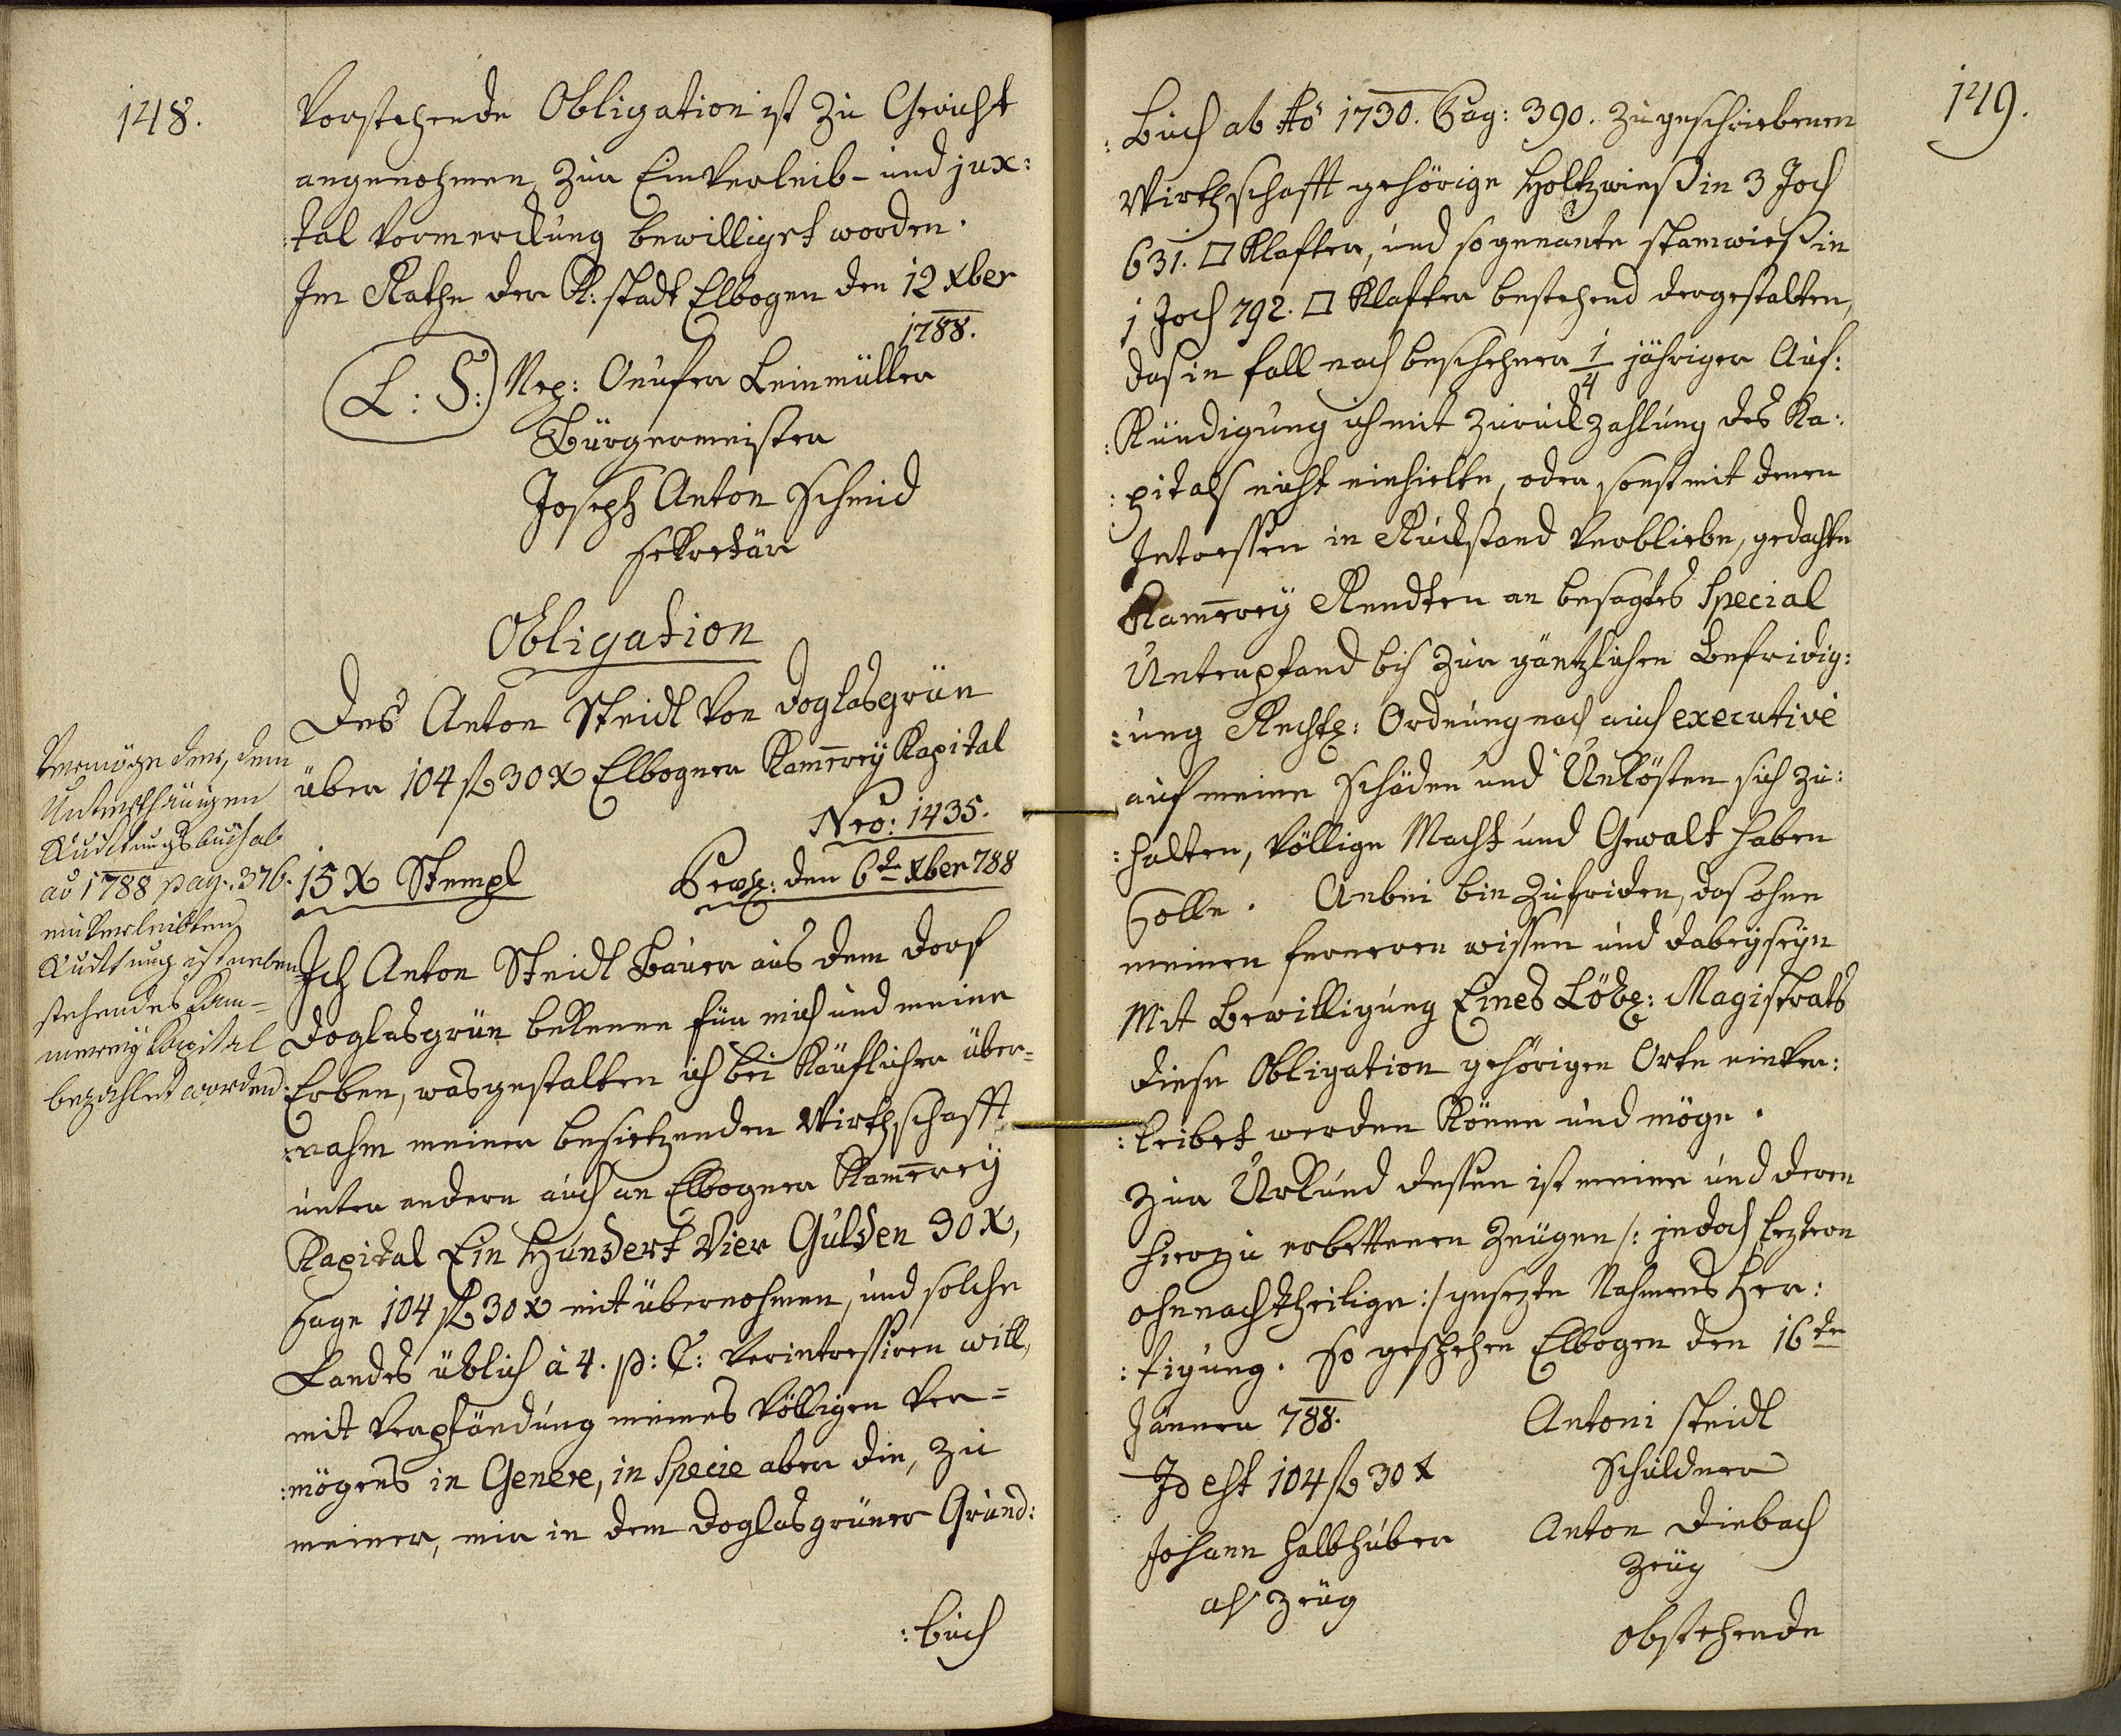 148.
Vorstehende Obligation ist zu Gericht
angenohmen, zur Einverleib- und jux:
:tal Vormerckung bewilliget worden.
Im Rathe der K: stadt Elbogen den 12 xber
1788.
L: S: Nep: Onufer Leinmüller
Bürgermeister
Joseph Anton Schmid
Sekretär
Obligation
Des Anton Steidl von Doglasgrün
über 104 fl 30 x Elbogner Kam̄erey Kapital
Nro: 1435.
15 x Stempl
den 6te xber 788
Ich Anton Steidl Bauer aus dem Dorf
Doglasgrün bekenne für mich und meine
Erben, wasgestalten ich bei Käuflicher über-
:nahm meiner besietzenden Wirthschafft
unter andern auch an Elbogner Kam̄erey
Kapital Ein Hundert Vier Gulden 30 x,
Sage 104 fl 30 x mit übernohmen, und solche
Landes üblich à 4. p: C: verintressiren will,
mit Verpfändung meines völligen Ver-
:mögens in Genere, in Specie aber die, zu
meiner, mir in dem Doglasgrüner Grund:
:buch
Vermöge der, dem
Unterthänigen
Quittungsbuch ab
ao 1788 pag. 376.
einverleibten
Quittung ist neben
stehendes Kam-
merey Kapital
bezahlet worden.
149.
:Buch ab Ao 1730. Pag: 390. zugeschriebenen
Wirthschafft gehörige Holtzwieß in 3 Joch
631. □ Klafter, und sogenante stamwieß in
1 Joch 792. □ Klafter bestehend dergestalten,
das in fall nach beschehener 1/4 jähriger Auf:
:Kündigung ich mit Zurückzahlung des Ka:
:pitals nicht einhielte, oder sonst mit denen
Intressen in Rückstand verbliebe, gedachte
Kam̄erey Rendten an besagtes Special
Unterpfand bis zur gäntzlichen Befridig:
:ung Rechts: Ordnung nach auch executivè
auf meine Schäden und Unkösten sich zu:
:halten, völlige Macht und Gewalt haben
Solle. Anbei bin zufriden, das ohne
meinen ferneren wissen und dabeyseyn
Mit Bewilligung Eines Löbl: Magistrats
diese Obligation gehörigen Orte einver:
:leibet werden könne und möge.
Zur Urkund dessen ist meine und deren
hierzu erbettenen Zeugen /: jedoch leztern
ohnnachtheilige :/ gesezte Nahmens Fer:
:tigung. So geschehen Elbogen den 16ten
Jänner 788.
Antoni Steidl
Schuldner
Id est 104 fl 30 x
Johann Halbhuber
als Zeug
Anton Diebach
Zeug
obstehende